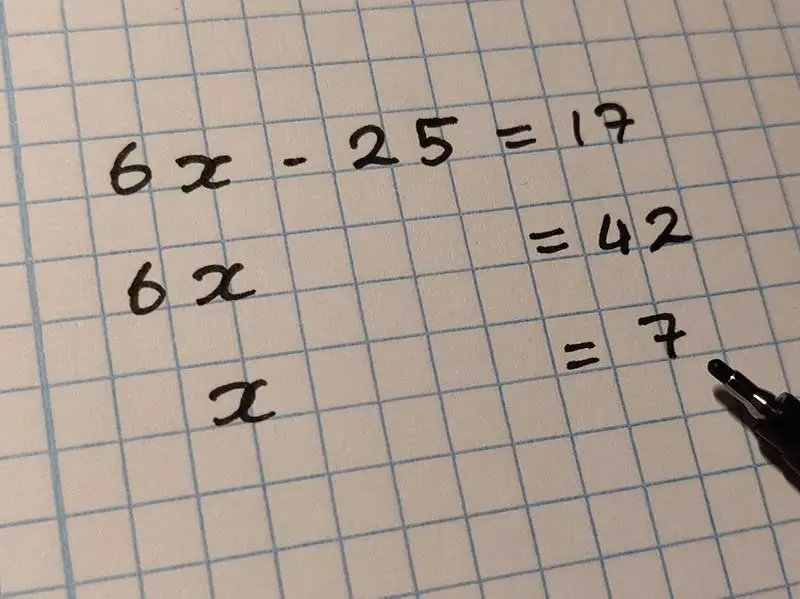 6x - 25 = 17
6x = 42
x = 7